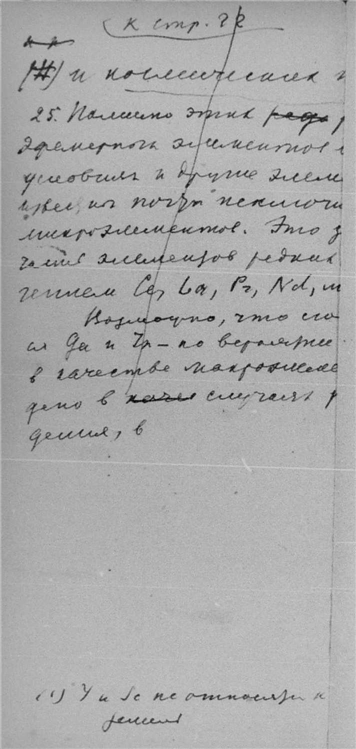 к стр. 22
(#) и космических
25. Помимо этих
эфемерного элементов
условиям и другие элем
известны почти исключи
микроэлементов. Это
чатие элементов редких
чением Ce, La, Pr, Nd, и
Возможно, что сю
ся Ga и In – по вероятно
в качестве макроэлеме
дено в случаях р
дения, в
(1) Y и Sc не относятся к
земля